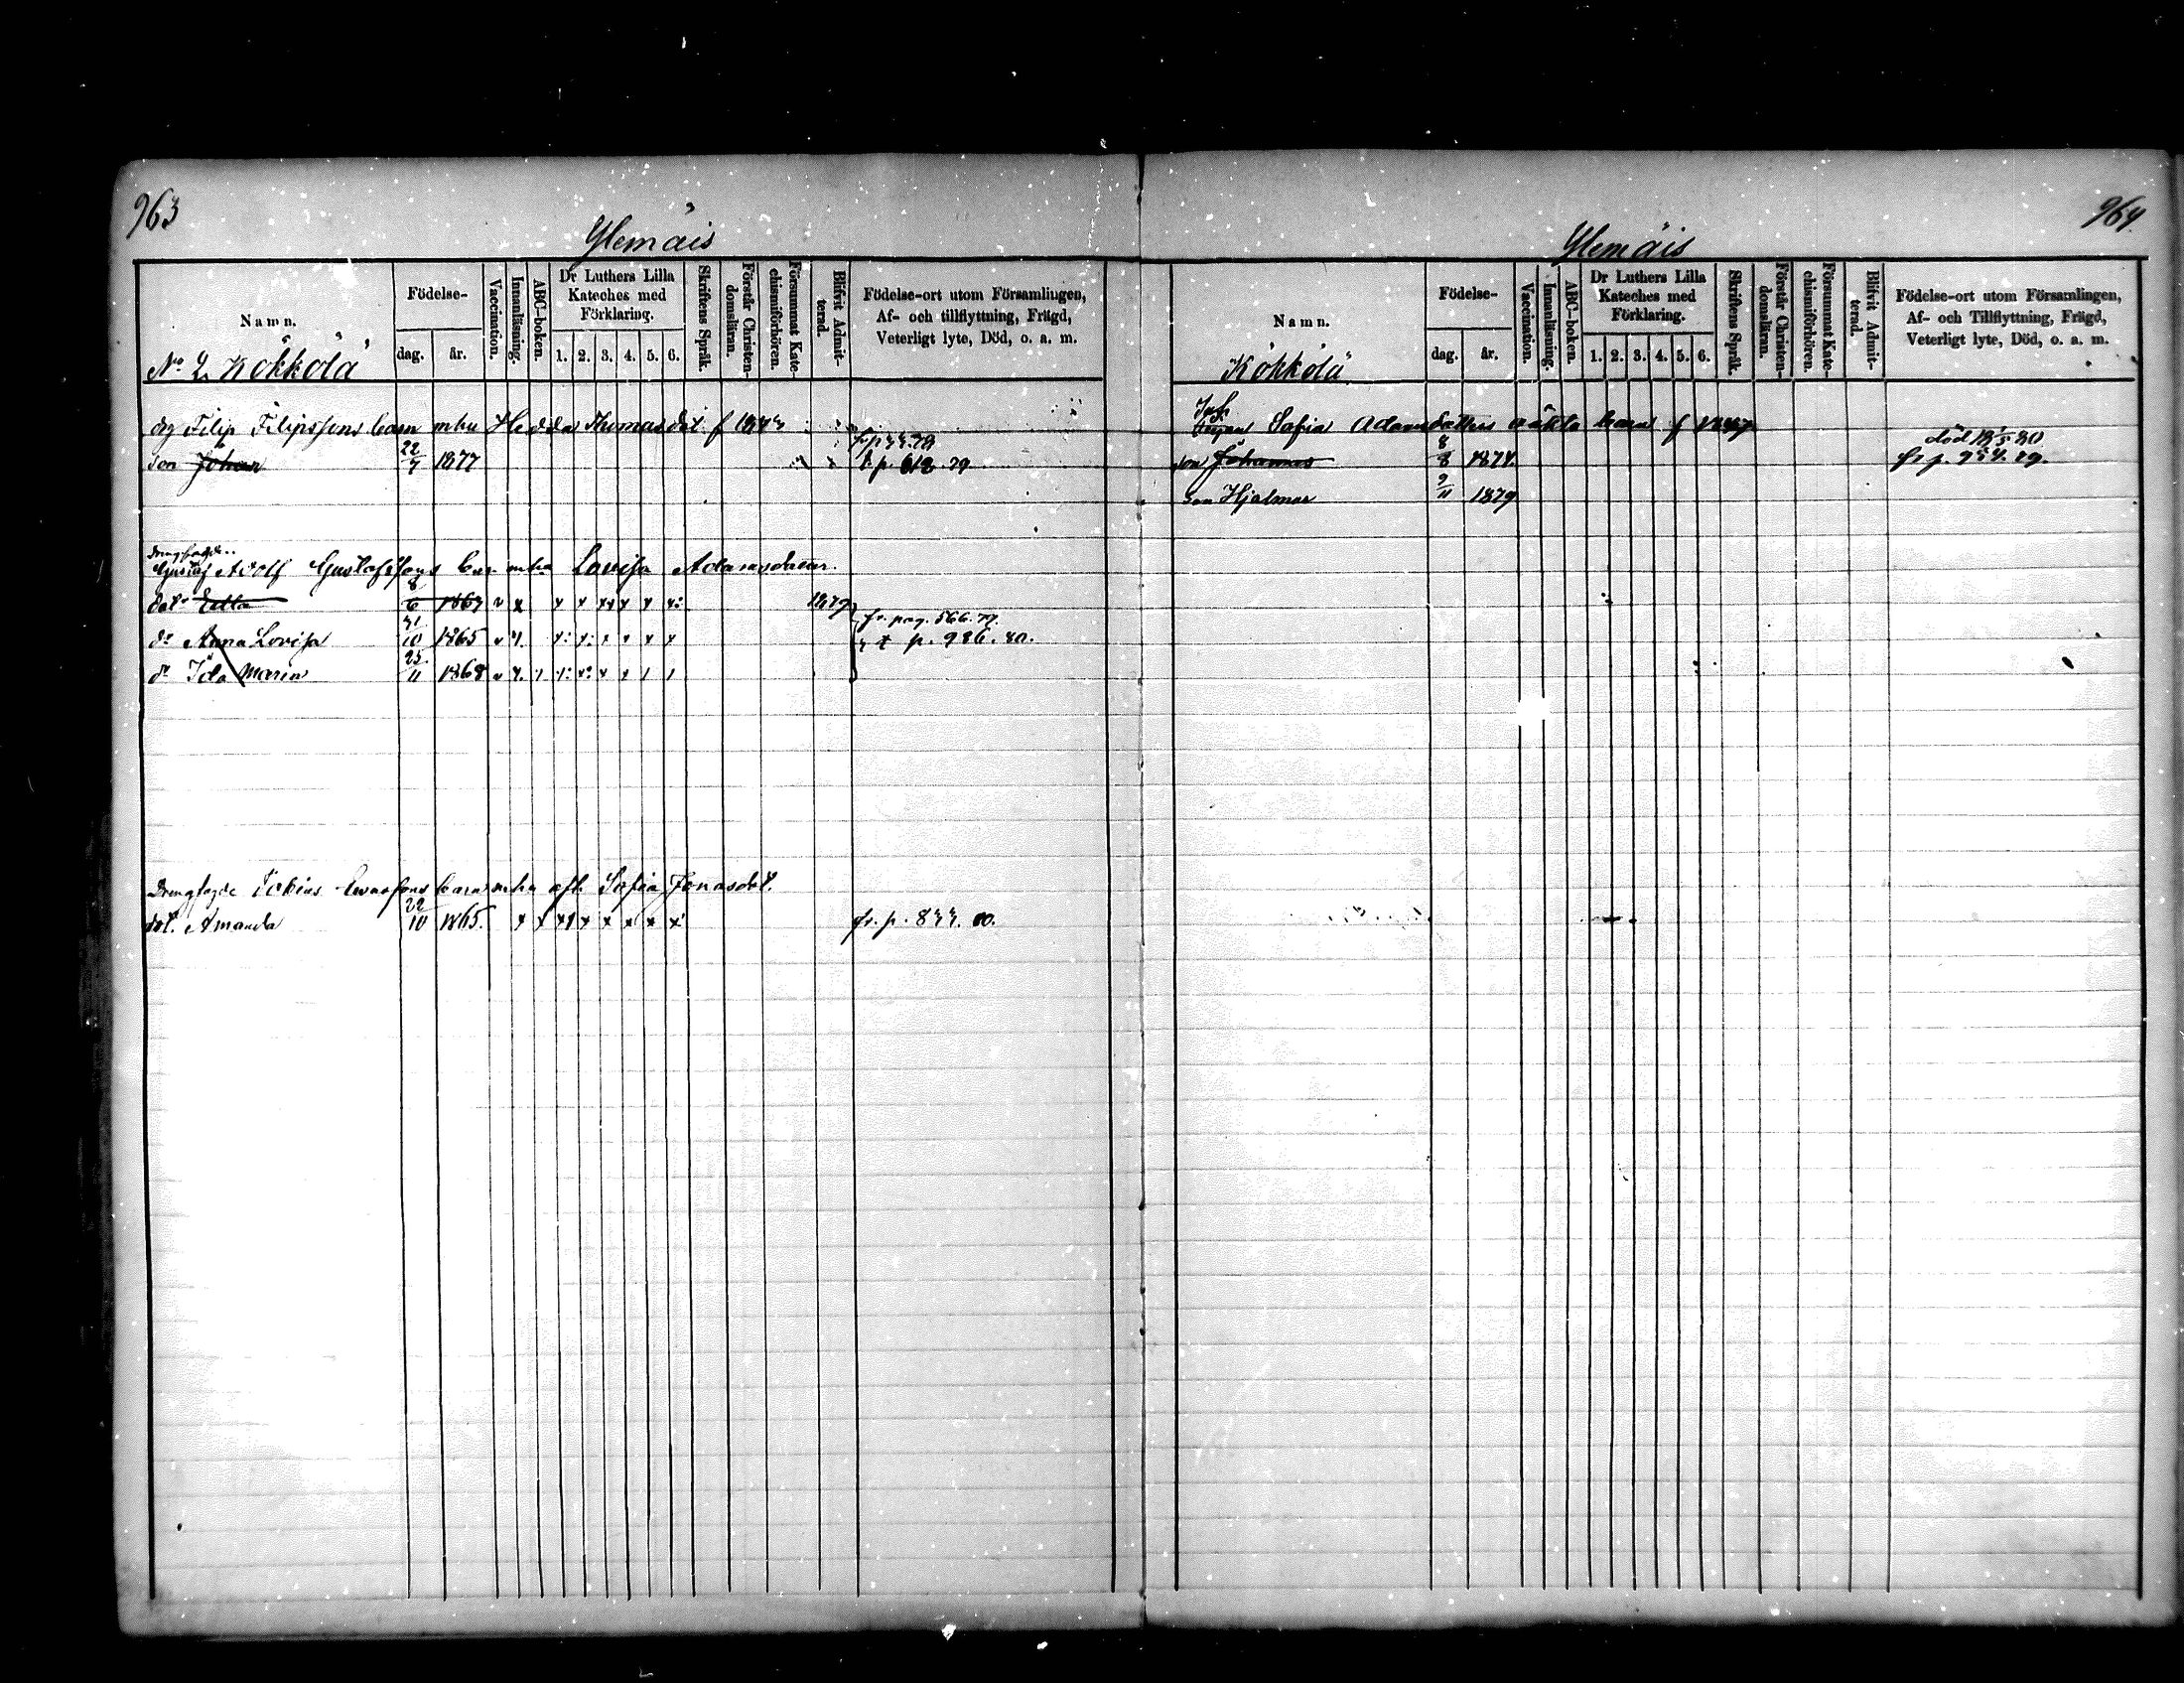 963
Ylemäis
Namn.
No 2. Kökkölä
Födelse-
dag. år.
Vaccination.
Innanläsning.
ABC-boken.
Dr Luthers Lilla
Kateches med
Förklaring.
1. 2. 3. 4. 5. 6.
Skriftens Språk.
Förstår Christen-
domsläran.
Försummat Kate-
chismiförhören.
Blifvit Admit-
terad.
Födelse-ort utom Församlingen,
Af- och tillflyttning, Frägd,
Veterligt lyte, Död, o. a. m.
drg Filip Filipssons barn mhu Hedda Thomasdot. f
son Johan 22/7 1877 t. p. 612. 79
Gustaf Adolf Gustafssons barn mhu Lovisa Adamsdotter.
dot. 8/6 1863 v x x x x x x x x: 1879
do Anna Lovisa 31/10 1865 v x. x: x: x x x x fr. pag. 566. 79.
t p. 986. 80.
do Ida Maria 25/11 1868
Drengfogde Tobias barn mhu afl. Sofia Jonasdot.
dot. Amanda 22/10 1865. x x x x x x x x x fr. p. 833. 80.
964.
Ylemäis
Namn.
Kökkölä
Födelse-
dag. år.
Vaccination.
Innanläsning.
ABC-boken.
Dr Luthers Lilla
Kateches med
Förklaring.
1. 2. 3. 4. 5. 6.
Skriftens Språk.
Förstår Christen-
domsläran.
Försummat Kate-
chismiförhören.
Blifvit Admit-
terad.
Födelse-ort utom Församlingen,
Af- och Tillflyttning, Frägd,
Veterligt lyte, Död, o. a. m.
Inh
Sofia Adamsdotters oäkta barn f 1847
son Johannes 8/8 1874. död 18/5 80
fr p. 954. 79.
son Hjalmar 9/11 1879